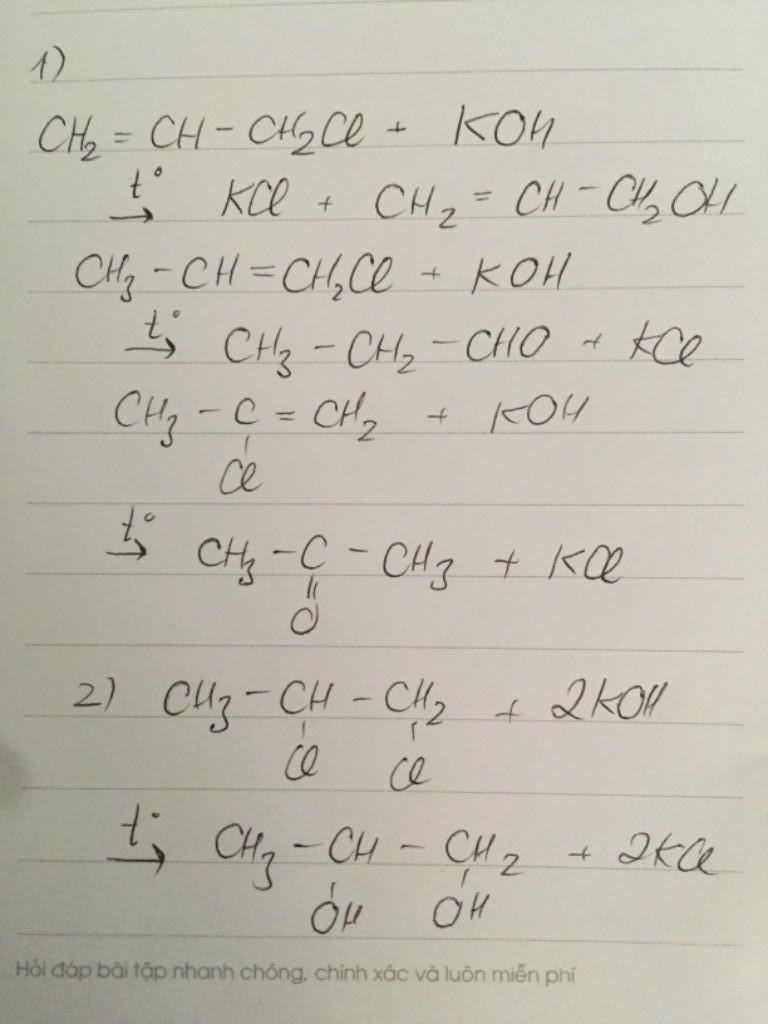 1)
CH₂ = CH - CH₂Cl + KOH
t° → KCl + CH₂ = CH - CH₂OH
CH₃ - CH = CH₂Cl + KOH
t° → CH₃ - CH₂ - CHO + KCl
CH₃ - C = CH₂ + KOH
Cl
t° → CH₃ - C - CH₃ + KCl
O
2) CH₃ - CH - CH₂ + 2KOH
Cl Cl
t° → CH₃ - CH - CH₂ + 2KCl
OH OH
Hỏi đáp bài tập nhanh chóng, chính xác và luôn miễn phí